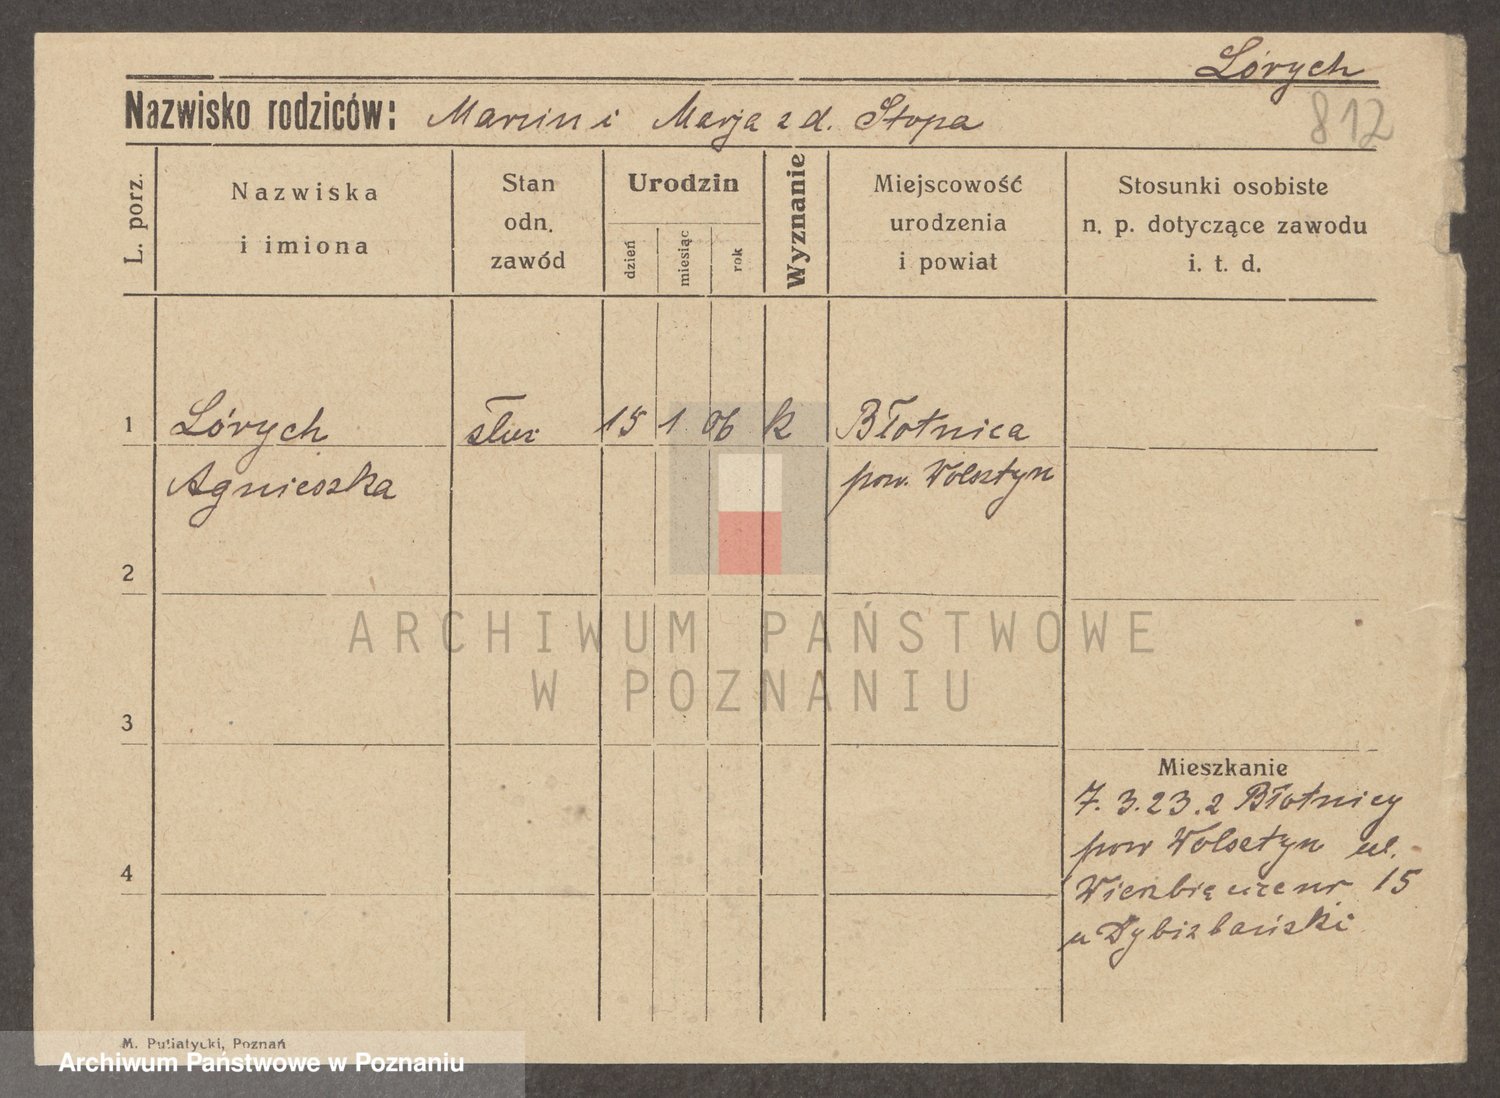 Lórych
812
Nazwisko rodziców: Marcin i Marja z d. Stopa
L. porz.
Nazwiska
i imiona
Stan
odn.
zawód
Urodzin
dzień
miesiąc
rok
Wyznanie
Miejscowość
urodzenia
i powiat
Stosunki osobiste
n. p. dotyczące zawodu
i. t. d.
1 Lórych służ 15 1 06 k Błotnica
Agnieszka pow. Wolsztyn
2
ARCHIWUM PAŃSTWOWE
W POZNANIU
3
Mieszkanie
7.3.23. z Błotnicy
pow Wolsztyn ul.
4
nr 15
u
M. Putiatycki, Poznań
Archiwum Państwowe w Poznaniu